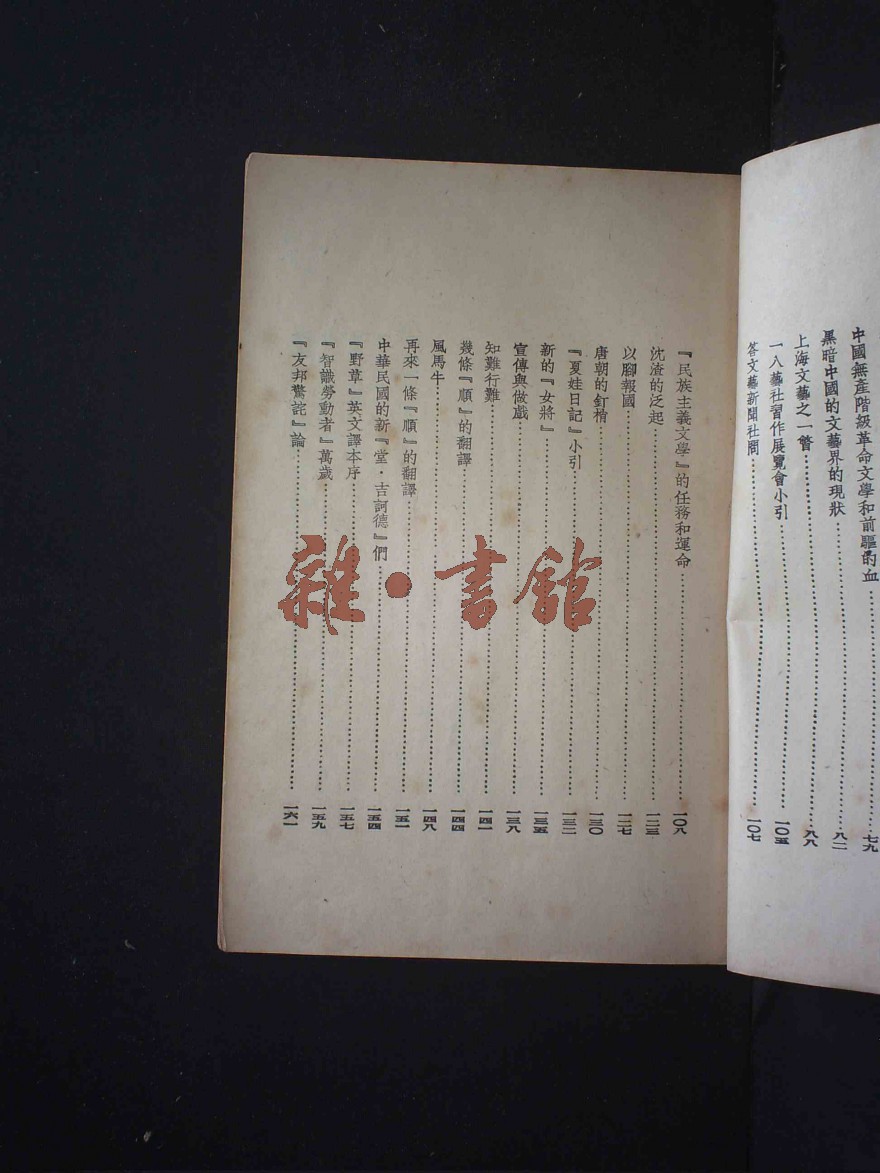 中國無產階級革命文學和前驅的血……七九
黑暗中國的文藝界的現狀……八二
上海文藝之一瞥……八八
一八藝社習作展覽會小引……一〇五
答文藝新聞社問……一〇七
『民族主義文學』的任務和運命……一〇八
沈渣的泛起……一二三
以腳報國……一二七
唐朝的釘梢……一三〇
『夏娃日記』小引……一三二
新的『女將』……一三五
宣傳與做戲……一三八
知難行難……一四一
幾條『順』的翻譯……一四四
風馬牛……一四八
再來一條『順』的翻譯……一五一
中華民國的新『堂・吉訶德』們……一五四
『野草』英文譯本序……一五七
『智識勞動者』萬歲……一五九
『友邦驚詫』論……一六一
雜・書館